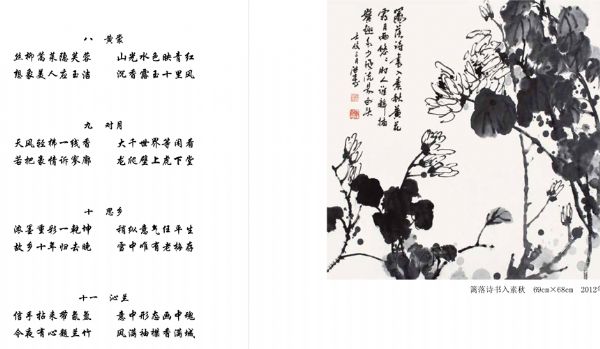 八 黄蒙
丝柳蒿莱隐芙蓉 山光水色映青红
想象美人在玉洁 沉香露玉十里风
九 对月
天风轻拂一线香 大千世界等闲看
若把豪情诉寥廓 龙爬壁上虎下堂
十 思乡
浓墨重彩一乾坤 稍纵意气任平生
故乡十年归去晚 雪中唯有老梅存
十一 沁兰
信手拈来带氤氲 意中形态画中魂
今夜有心题兰竹 风满袖襟香满城
篱落诗书入素秋 黄花
篱落诗书入素秋 69cm×68cm 2012年